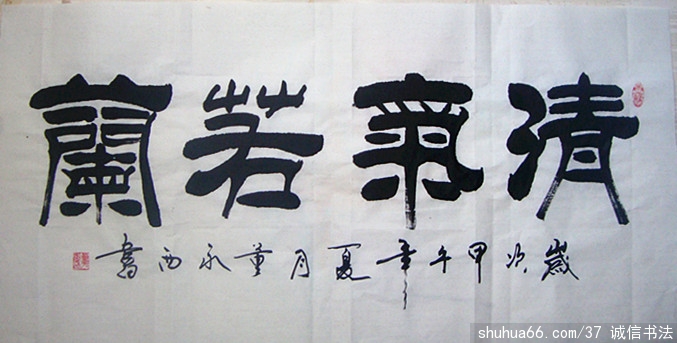 清氣若蘭
歲次甲午年夏月董永西書
shuhua66.com/37 诚信书法